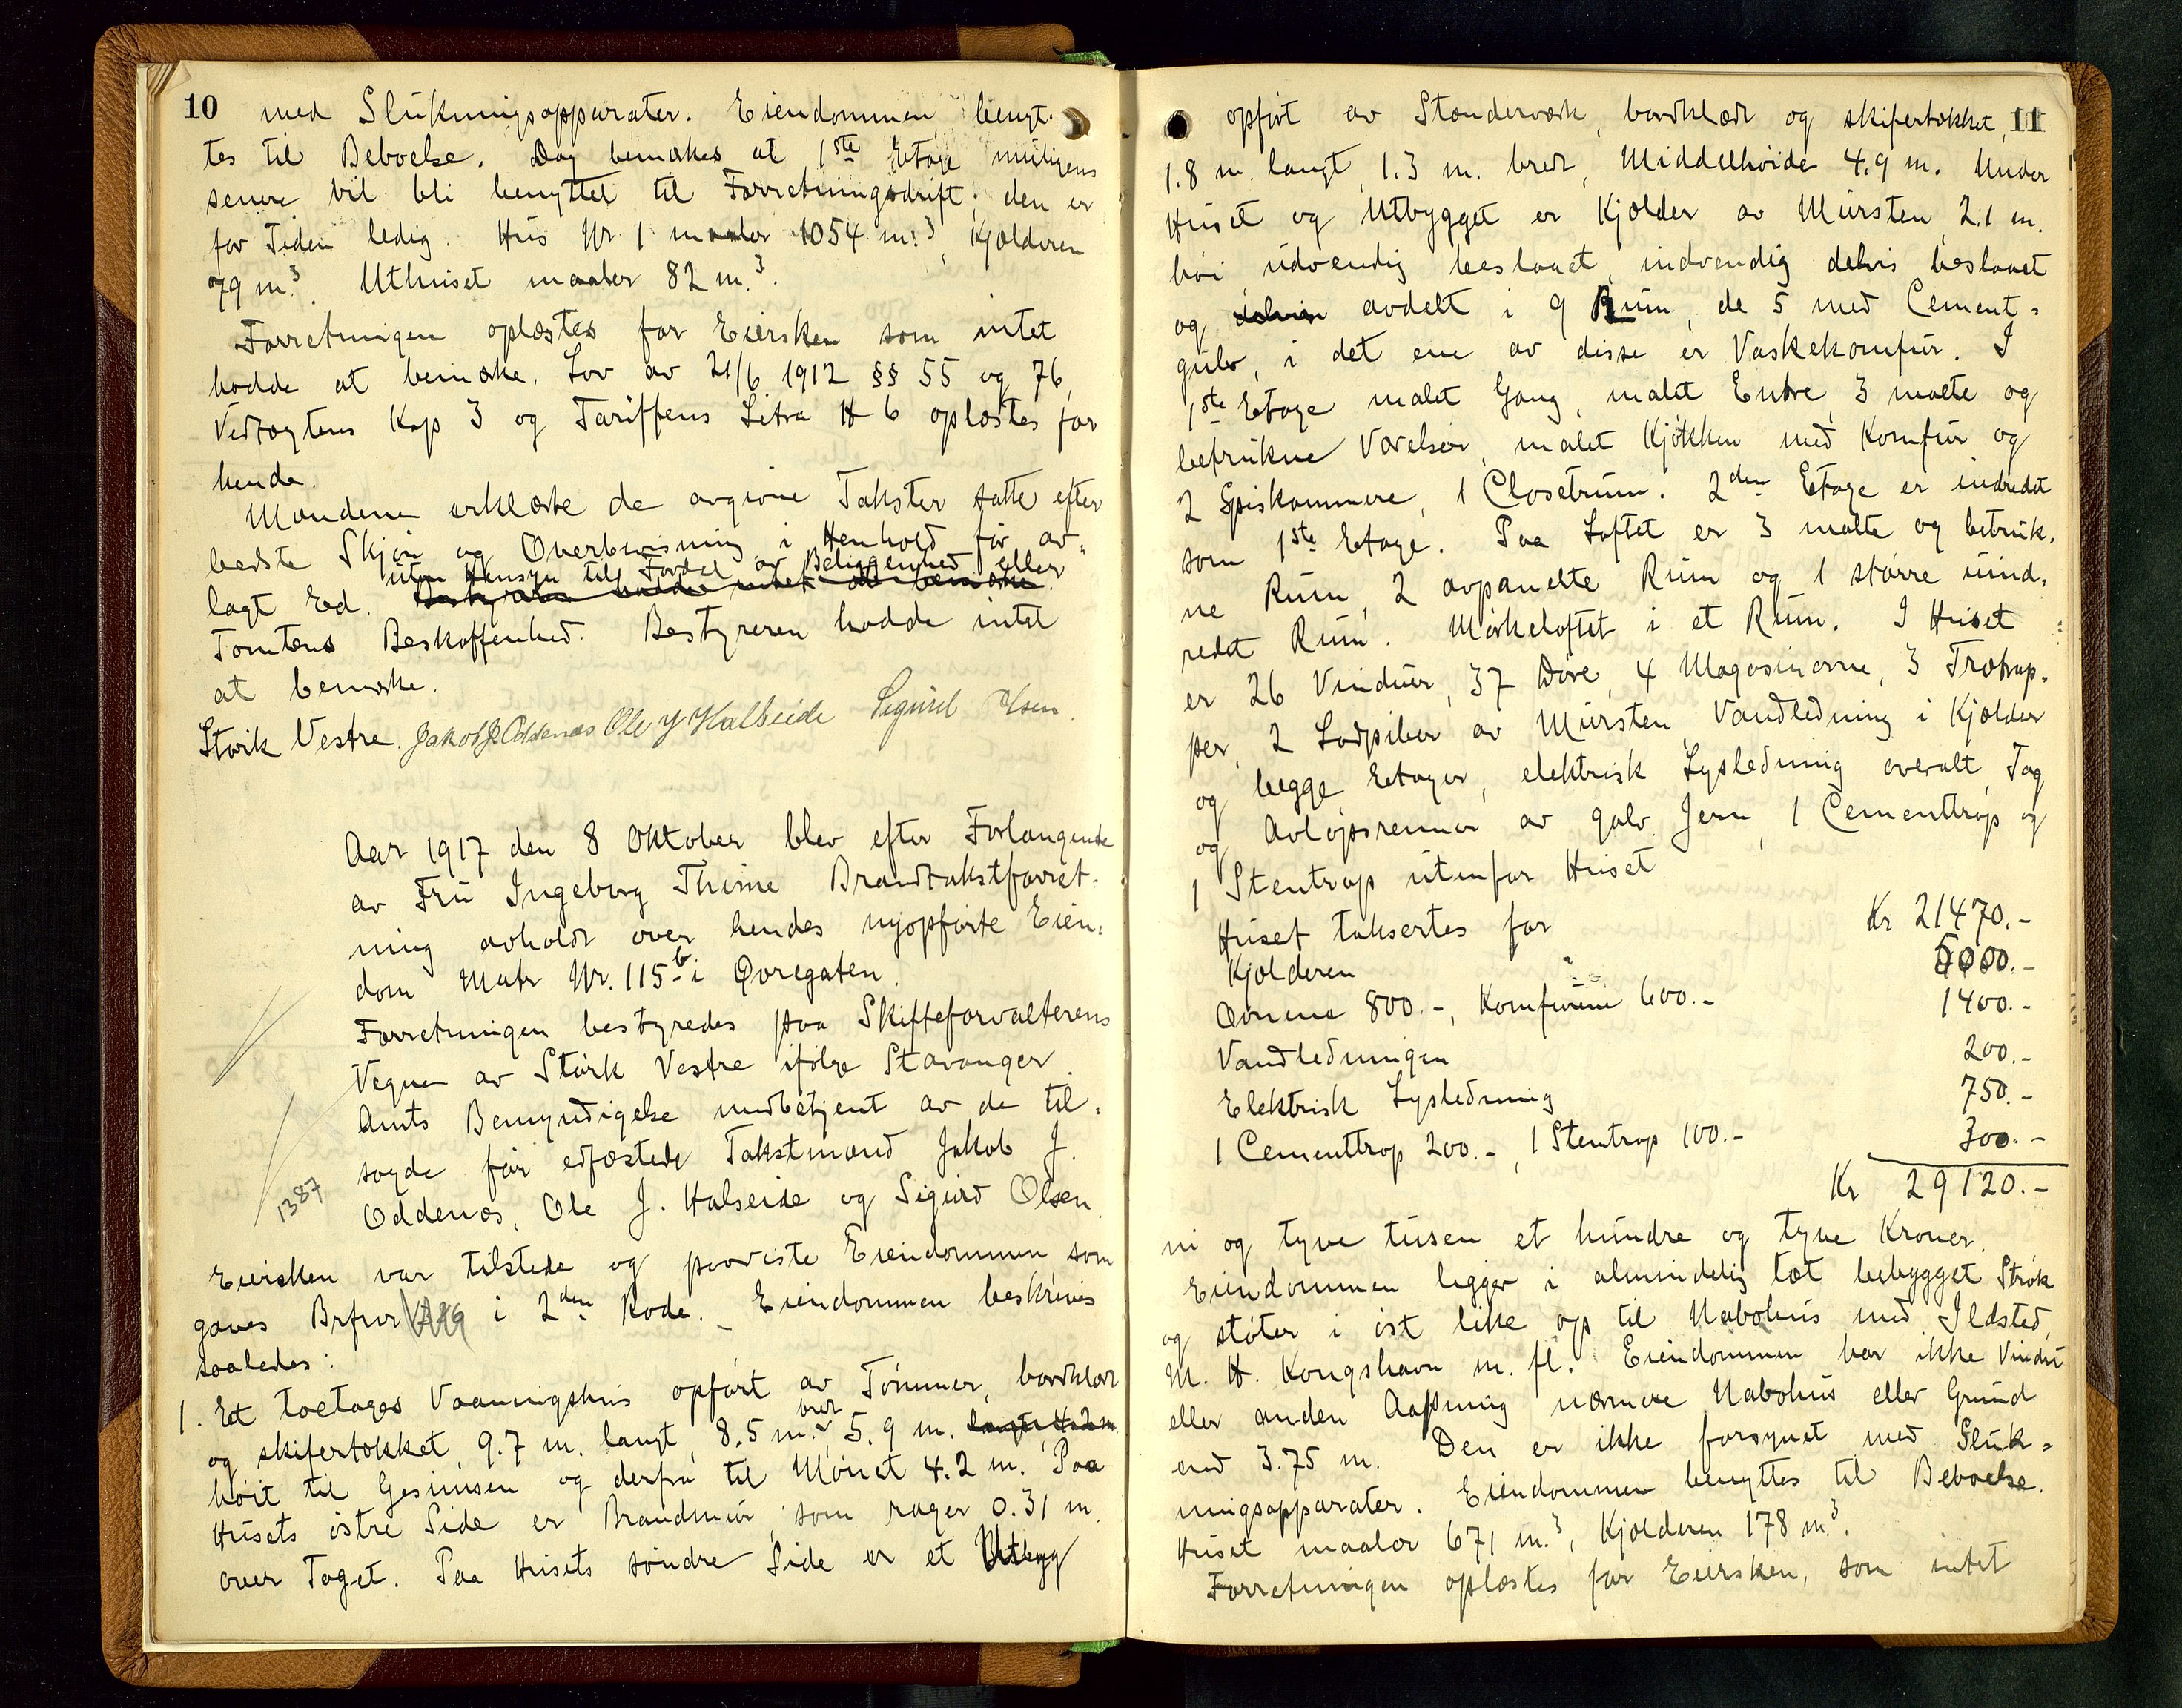 10 med Slukningsapparater. Eiendommen benyt-
tes til Beboelse. Dog bemerkes at 1ste Etage muligens
senere vil bli benyttet til Forretningsdrift; den er
for Tiden ledig. Hus Nr 1 maaler 1054 m.³, Kjælderen
79 m.³. Uthuset maaler 82 m.³.
Forretningen oplæstes for Eiersken som intet
hadde at bemærke. Lov av 21/6 1912 §§ 55 og 76,
Vedtægtens Kap 3 og Tariffens Litra H 6 oplæstes for
hende.
Mændene erklærte de avgivne Takster satte efter
bedste Skjøn og Overbevisning i Henhold før av-
uten Hensyn til Fordel av Beliggenhed eller
lagt Ed. Bestyreren hadde intet at bemærke.
Tomtens Beskaffenhed. Bestyreren hadde intet
at bemærke.
Størk Vestre. Jakob J Oddenæs Ole J Halseide Sigurd Olsen.
Aar 1917 den 8 Oktober blev efter Forlangende
av Fru Ingeborg Thime Brandtakstforret-
ning avholdt over hendes nyopførte Eien-
dom Matr Nr. 115 b i Øvregaten.
Forretningen bestyredes paa Skifteforvalterens
Vegne av Størk Vestre ifølge Stavanger
Amts Bemyndigelse medbetjent av de til-
sagde før edfæstede Takstmænd Jakob J.
Oddenæs, Ole J. Halseide og Sigurd Olsen.
1387
Eiersken var tilstede og paaviste Eiendommen som
gaves Brfnr i 2den Rode. _ Eiendommen beskrives
saaledes:
1. Et toetages Vaaningshus opført av Tømmer, bordklædt
og skifertækket, 9.7 m. langt, 8.5 m. bredt, 5.9 m. langt, 4.2 m
høit til Gesimsen og derfra til Mønet 4.2 m. Paa
Husets østre Side er Brandmur, som rager 0.31 m.
over Taget. Paa Husets søndre Side er et Utbyg
11
opført av Stænderværk, bordklædt og skifertækket,
1.8 m. langt, 1.3 m. bredt, Middelhøide 4.9 m. Under
Huset og Utbygget er Kjælder av Mursten, 2.1 m.
høi, udvendig beslaaet, indvendig delvis beslaaet
og delvis avdelt i 9 Rum, de 5 med Cement-
gulv, i det ene av disse er Vaskekomfur. I
1ste Etage malet Gang, malet Entre, 3 malte og
betrukne Værelser, malet Kjøkken med Komfur og
2 Spiskammere, 1 Closetrum. 2den Etage er indredet
som 1ste Etage. Paa Loftet er 3 malte og betruk-
ne Rum, 2 avpanelte Rum og 1 større uind-
redet Rum. Mørkeloftet i et Rum. I Huset
er 26 Vinduer, 37 Døre, 4 Magasinovne, 3 Trætrap-
per, 2 Ladpiber av Mursten, Vandledning i Kjælder
og begge Etager, elektrisk Lysledning overalt, Tag
og Avløpsrenner av galv. Jern, 1 Cementtrap og
1 Stentrap utenfor Huset
Huset taksertes for Kr 21470.-
Kjælderen 5000.-
Ovnene 800.-, Komfurene 600.- 1400.-
Vandledningen 200.-
Elektrisk Lysledning 750.-
1 Cementtrap 200.-, 1 Stentrap 100.- 300.-
Kr 29120.-
ni og tyve tusen et hundre og tyve Kroner.
Eiendommen ligger i almindelig tæt bebygget Strøk
og støter i øst like op til Nabohus med Ildsted,
M. H. Kongshavn m. fl. Eiendommen har ikke Vindu
eller anden Aapning nærmere Nabohus eller Grund
end 3.75 m. Den er ikke forsynet med Sluk-
ningsapparater. Eiendommen benyttes til Beboelse.
Huset maaler 671 m.³, Kjælderen 178 m.³.
Forretningen oplæstes for Eiersken, som intet